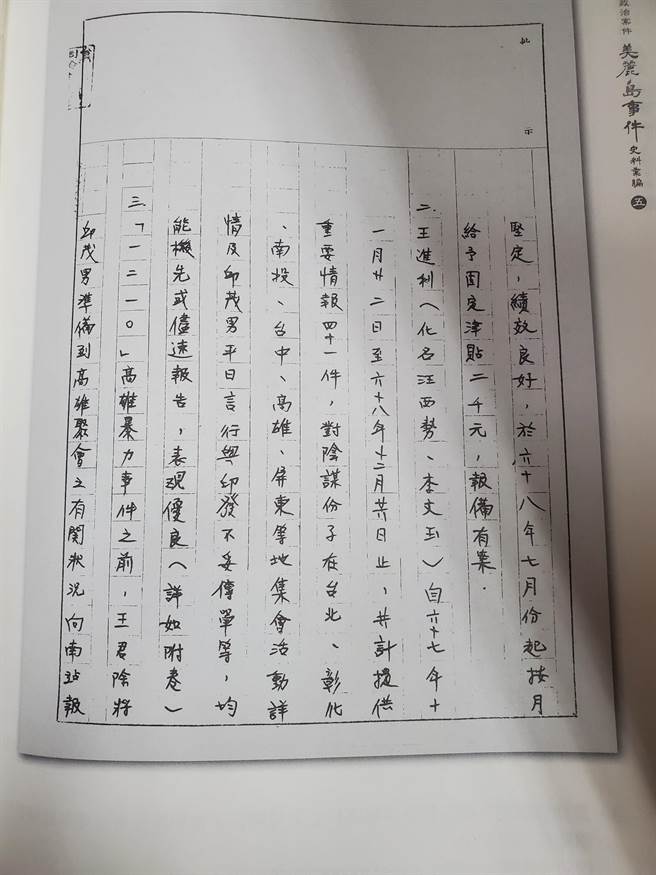 政治案件 美麗島事件 史料彙編 五
批 示
堅定,績效良好,於六十八年七月份起按月
給予固定津貼二千元,報備有案.
二、王進利(化名汪西勢、李文玉)自六十七年十
一月廿二日至六十八年十二月廿日止,共計提供
重要情報四十一件,對陰謀份子在台北、彰化
、南投、台中、高雄、屏東等地集會活動詳
情及邱茂男平日言行與印發不妥傳單等,均
能機先或儘速報告,表現優良(詳如附卷)
三、「一二一○」高雄暴力事件之前,王君除將
邱茂男準備到高雄聚會之有関狀況向南站報